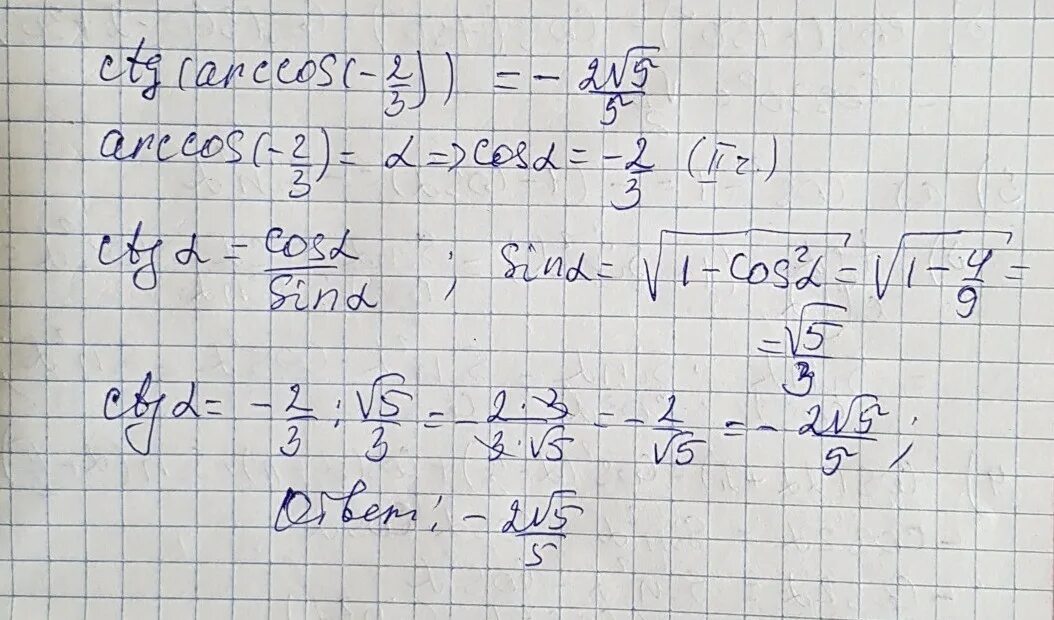 ctg(arccos(-2/3)) = - 2√5/5
arccos(-2/3) = α => cosα = -2/3 (II ч.)
ctg α = cosα/sinα ; sinα = √(1-cos²α) = √(1-4/9) =
= √5/3
ctg α = -2/3 : √5/3 = - 2·3/3·√5 = - 2/√5 = - 2√5/5 ;
Ответ: - 2√5/5